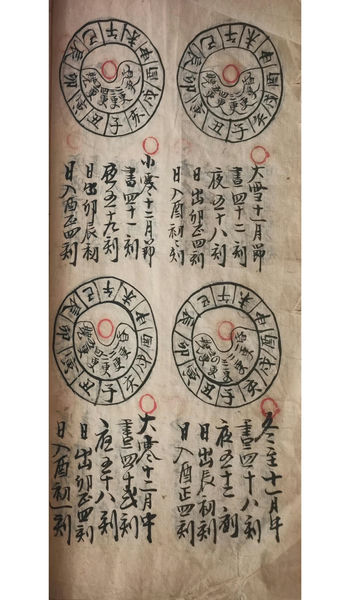 子丑寅卯辰巳午未申酉戌亥
大雪十一月節
晝四十二刻
夜五十八刻
日出卯正四刻
日入酉初刻
子丑寅卯辰巳午未申酉戌亥
小寒十二月節
晝四十一刻
夜五十九刻
日出卯辰初
日入酉正四刻
子丑寅卯辰巳午未申酉戌亥
冬至十一月中
晝四十八刻
夜五十二刻
日出辰初刻
日入酉正四刻
子丑寅卯辰巳午未申酉戌亥
大寒十二月中
晝四十弍刻
夜五十八刻
日出卯正四刻
日入酉初一刻